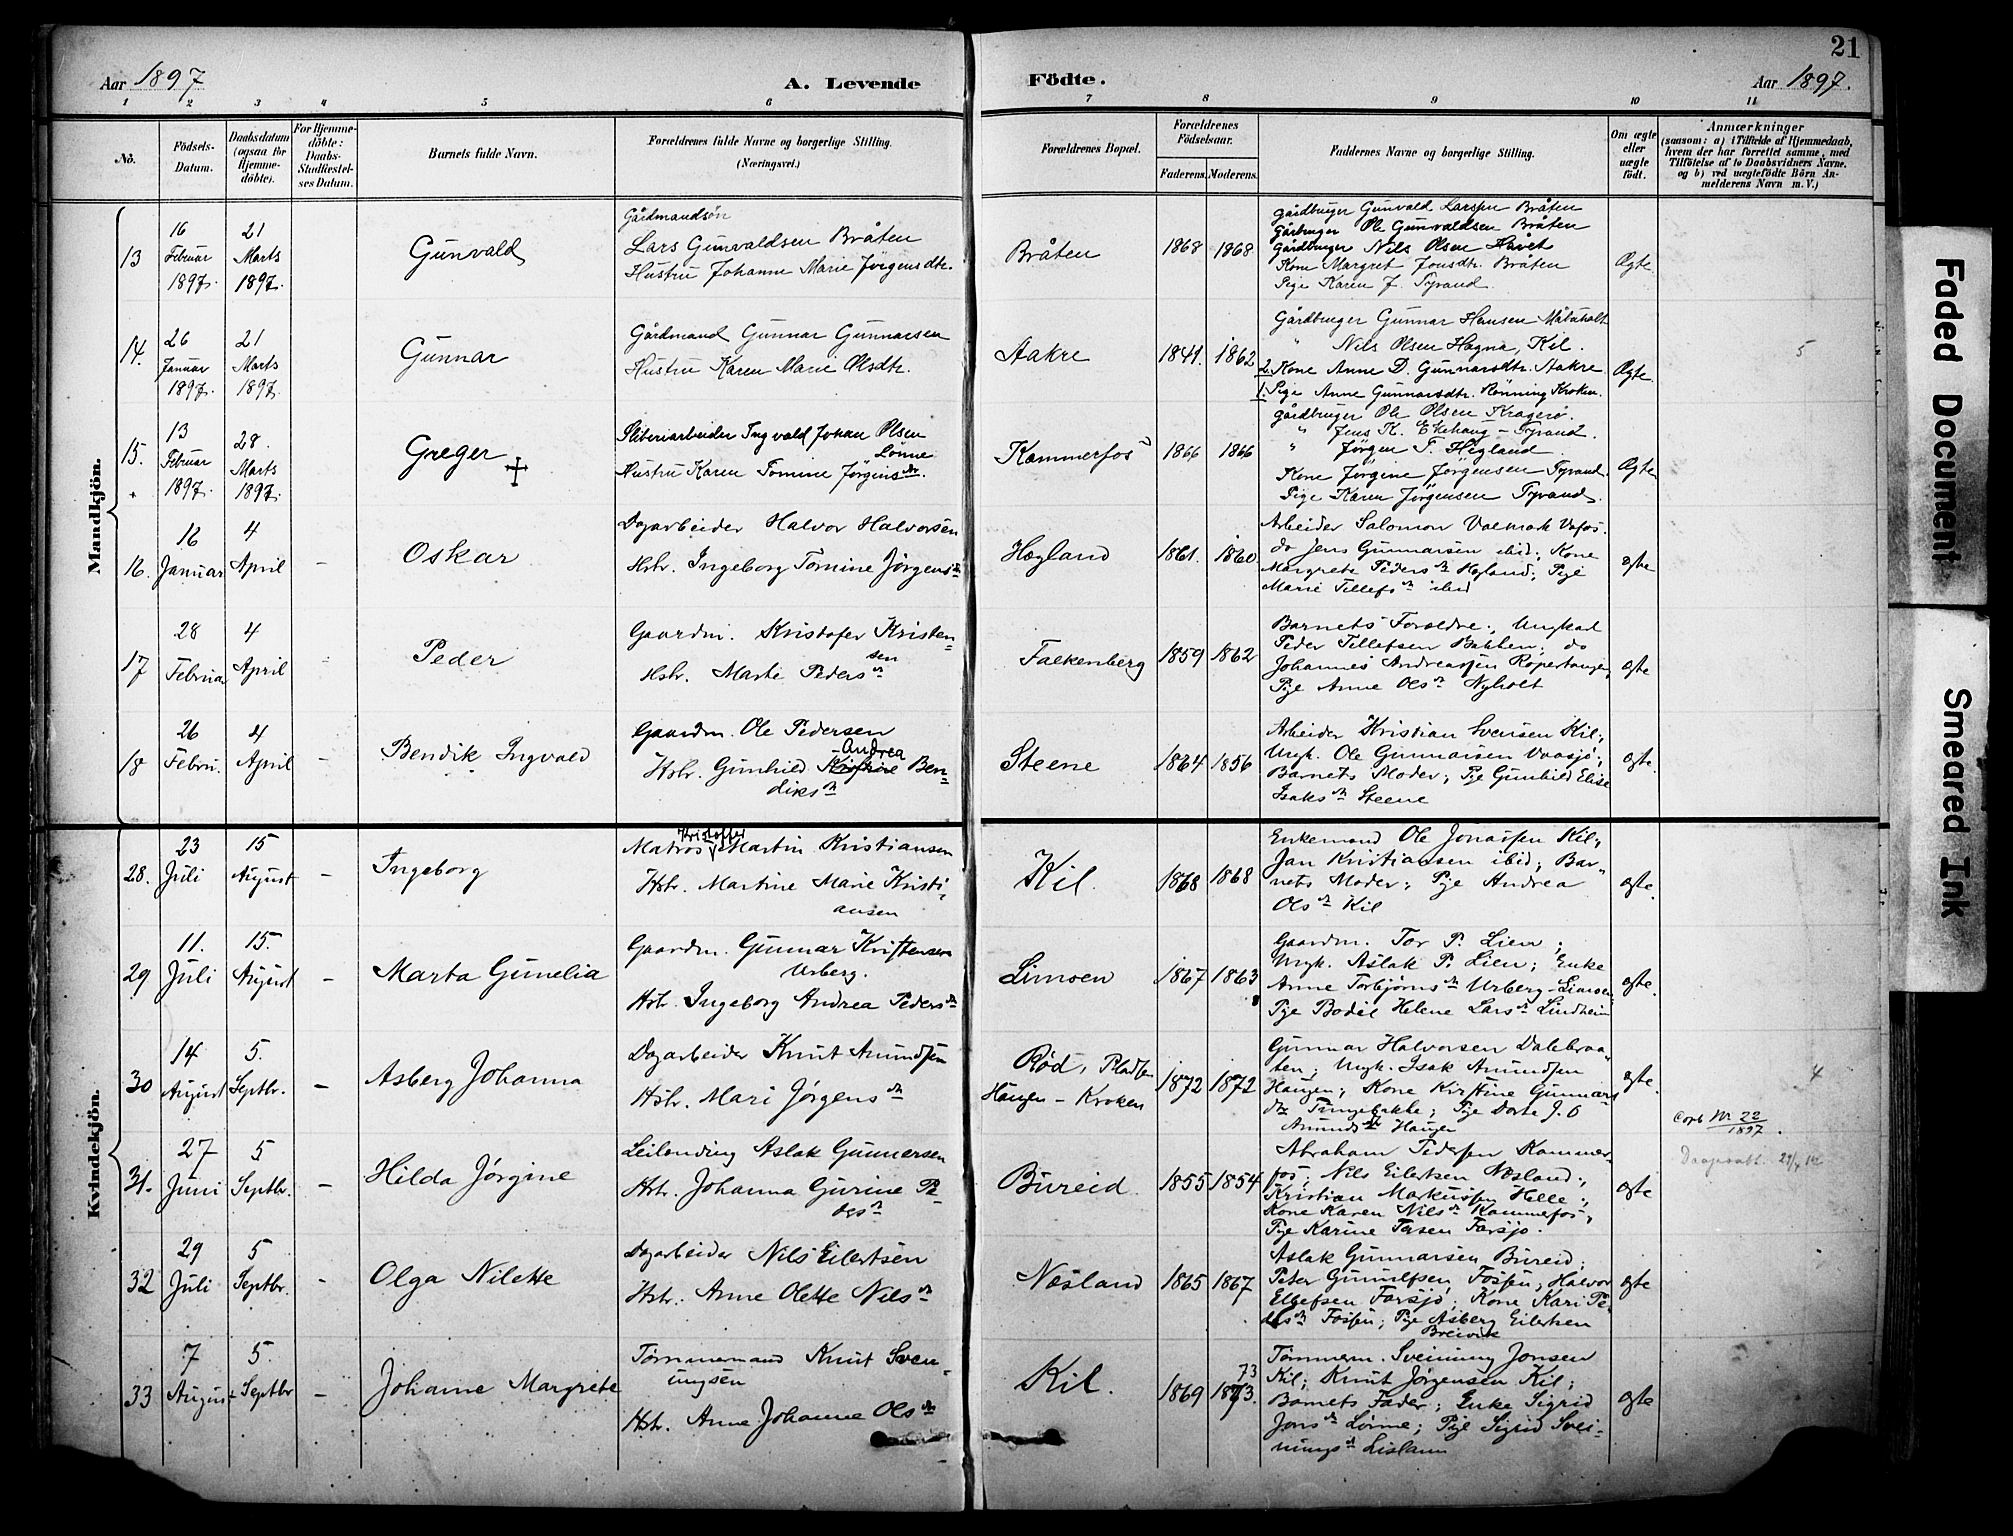 21
Aar 1897
A. Levende
Födte.
Aar 1897.
1 2 3 4 5 6 7 8 9 10 11
No.
Födsels-
Datum.
Daabsdatum
(ogsaa for
Hjemme-
döbte).
For Hjemme-
döbte:
Daabs-
Stadfæstel-
ses Datum.
Barnets fulde Navn.
Forældrenes fulde Navne og borgerlige Stilling.
(Næringsvei.)
Forældrenes Bopæl.
Forældrenes
Födselsaar.
Faderens. Moderens.
Faddernes Navne og borgerlige Stilling.
Om ægte
eller
uægte
födt.
Anmærkninger
(saasom: a) i Tilfælde af Hjemmedaab,
hvem der har forrettet samme, med
Tilföielse af to Daabsvidners Navne.
og b) ved uægtefödte Börn An-
melderens Navn m. V.)
Mandkjön.
13
16
Februar
1897.
21
Marts
1897.
Gunvald
Gårdmandsøn
Lars Gunvaldsen Bråten
Hustru Johanne Marie Jörgensdtr.
Bråten
1868 1868
gårdbruger Gunvald Larssen Bråten
Gårbruger Ole Gunvaldsen Bråten
gårdbruger Nils Olsen
Kone Margret Jonsdtr. Bråten
Pige Karen J. Tyrand.
Ægte.
14.
26
Januar
1897.
21
Marts
1897.
Gunnar
Gårdmand Gunnar Gunnarsen
Hustru Karen Marie Olsdtr.
Aakre
1841. 1862
Gårdbruger Gunnar Hansen
" Nils Olsen Hagna, Kil.
2. Kone Anne D. Gunnarsdtr. Aakre
1. Pige Anne Gunnarsdtr. Rønning Kroken.
Ægte.
5
15.
13
Februar
1897.
28.
Marts
1897.
Greger
Sliberiarbeider Ingvald Johan Olsen
Lönne
Hustru Karen Tomine Jørgensdr.
Kammerfos
1866 1866
gårdbruger Ole Olsen Kragerö.
" Jens K. Ekehaug - Tyrand.
" Jørgen T. Högland
Kone Jørgine Jørgensen Tyrand.
Pige Karen Jørgensen Tyrand.
Ægte
16.
16
Januar
4
April
-
Oskar
Dagarbeider Halvor Halvorsen
Hstr. Ingeborg Tomine Jørgensdr
Høgland
1861. 1860.
Arbeider Salomon Valmark Vafos.
do Jens Gunnarsen ibid; Kone
Margrete Pedersdr Høgland; Pige
Marie Tellefsdr ibid
ægte
17
28
Februar
4
April
-
Peder
Gaardm. Kristofer Kristen
sen
Hstr. Marte Pedersdr
Falkenberg
1859 1862
Barnets Forældre; Ungkarl
Peder Tellefsen Bakken; do
Johannes Andreassen
Pige Anne Olsdr Nyholt
ægte
18
26
Febru.
4
April
-
Bendik Ingvald
Gaardm. Ole Pedersen
Andrea
Hstr. Gunhild Kristine Ben-
diksdr
Steene
1864 1856
Arbeider Kristian Svensen Kil;
Ungk. Ole Gunnarsen Vaasjø;
Barnets Moder; Pige Gunhild Elise
Isaksdr Steene
ægte.
Kvindekjön.
28.
23
Juli
15
August
-
Ingeborg
Kristoffer
Matros Martin Kristiansen
Hstr. Martine Marie Kristi-
ansen
Kil.
1868 1868
Enkemand Ole Jonassen Kil;
Jan Kristiansen ibid; Bar-
nets Moder; Pige Andrea
Olsdr Kil
ægte.
29
11.
Juli
15.
August
-
Marta Gunelia
Gaardm. Gunnar Kristensen
Urberg.
Hstr. Ingeborg Andrea Pedersdr
Limoen
1867 1863
Gaardm. Tor P. Lien;
Ungk. Aslak P. Lien; Enke
Anne Torbjørnsdr Urberg-Limoen;
Pige Bodil Helene Larsdr Lindheim
ægte.
30
14
August
5.
Septbr.
-
Asberg Johanna
Dagarbeider Knut Amundsen
Hstr. Mari Jørgensdr
Rød, Pladsen
Haugen - Kroken
1872 1872
Gunnar Halvorsen Dalebraa-
ten; Ungk. Isak Amundsen
Haugen; Kone Kristine Gunnars
dtr Tingebakke; Pige Dorte J. O
Amundsdr Haugen
ægte.
4
31.
27
Juni
5
Septbr.
-
Hilda Jørgine
Leilending Aslak Gunnersen
Hstr. Johanna Gurine Pe-
dersdr
Bureid.
1855 1854
Abraham Pedersen Kammer-
fos; Nils Eilertsen Næsland;
Kristian Markussen Helle;
Kone Karen Nilsdr Kammerfos;
Pige Karine Tasen Farsjø.
ægte
Nr 22
1897.
32
29
Juli
5
Septbr.
-
Olga Nilette
Dagarbeider Nils Eilertsen
Hstr. Anne Olette Nilsdr
Næsland
1865 1867
Aslak Gunnarsen Bureid;
Peter Gunulfsen Fossen; Halvor
Ellefsen Farsjø; Kone Kari Pe-
dersdr Fossen; Pige Asberg Eilertsen
Breivik
ægte
33
7
August
5.
Septbr
-
Johanne Margrete
Tømmermand Knut Sven-
ungsen
Hstr. Anne Johanne Olsdr
Kil.
1869 1873.
73
Tømmerm. Sveinung Jonsen
Kil; Knut Jørgensen Kil;
Barnets Fader; Enke Sigrid
Jonsdr Lönne; Pige Sigrid Svei-
nungsdr
ægte
Faded Document
Smeared Ink